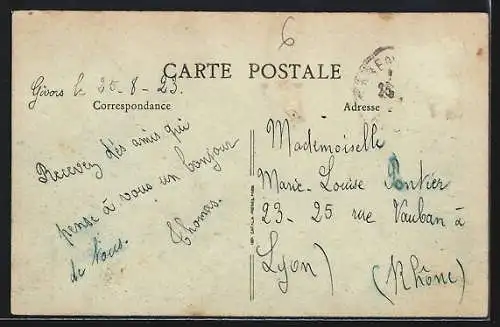 6
CARTE POSTALE
Givors le 25-8-23.
Correspondance
Adresse
25
Recevez des amis qui
pense à vous un bonjour
de Nous.
Thomas.
Mademoiselle
Marie-Louise Pontier
23-25 rue Vauban à
Lyon)
(Rhône)